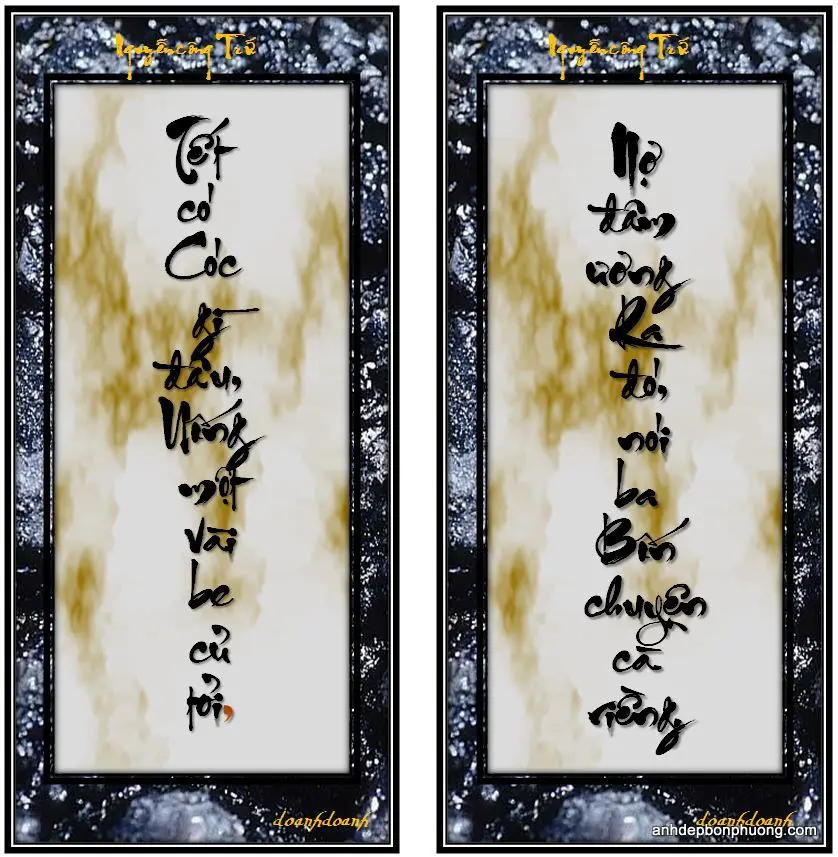 Nguyễn công Trứ
Tết
có
Cóc
gì
đâu,
Uống
một
vài
be
củ
tỏi,
doanhdoanh
Nguyễn công Trứ
Nợ
đâm
ương
Ra
đó,
nói
ba
Bốn
chuyện
cà
riềng.
doanhdoanh
anhdepbonphuong.com